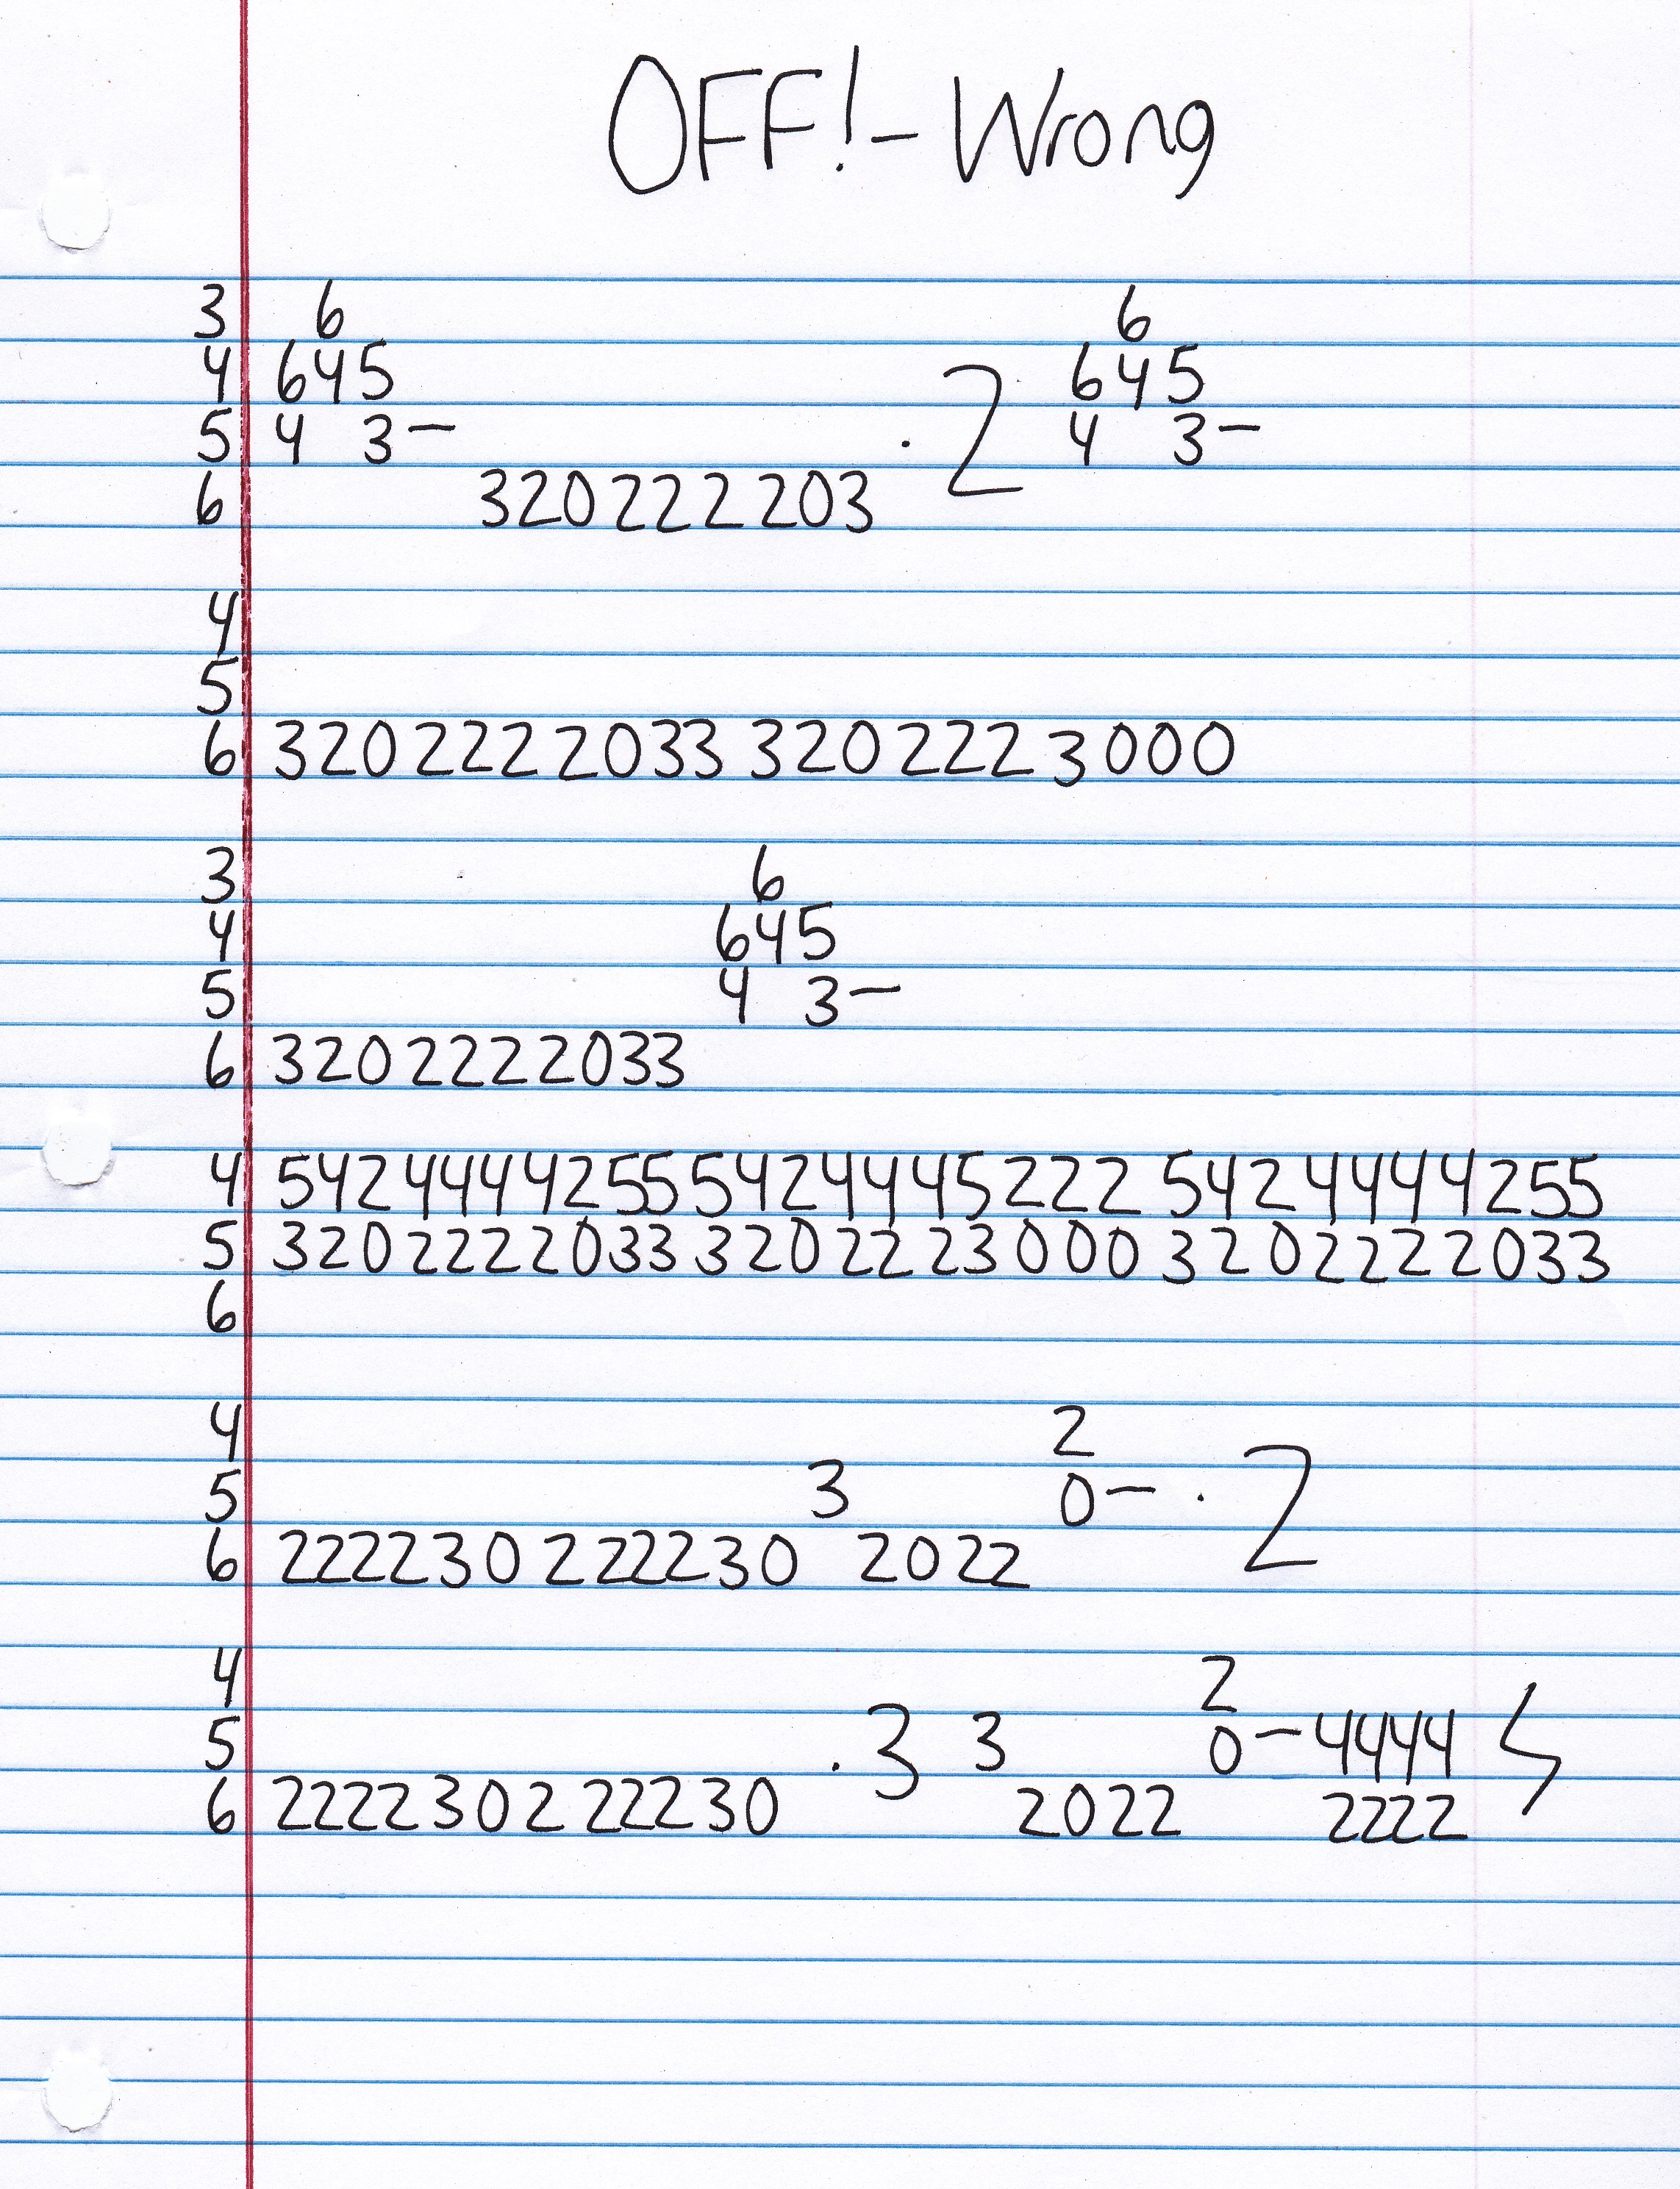 OFF! - Wrong
3 6 6
4 645 645
5 4 3- . 2 4 3-
6 320222 2203
4
5
6 320 2222033 320 2223000
3 6
4 645
5 4 3-
6 320 2222033
4 542444425555424445222 5424444255
5 320 2222033 320 2223000 320 2222033
6
4 2
5 3 0- . 2
6 222230 2222230 2022
4 2
5 .3 3 0-4444
6 222230 2 22230 2022 2222